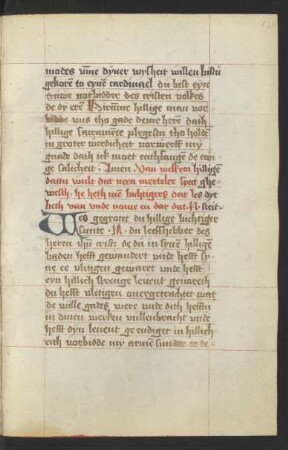 mades vnne dyner wysheit willen bistu
gekoren to eyneme cardinael du bist eyn
truwe vorbidder des cristen volkes
de dy eren Hirumme hillige man vor
bidde vns tho gade deme heren dath
hillige sacramente plegestu tho holde
in groter werdicheit vorwerff my
gnade dath ik moet entfangen de ewi
ge salicheit Amen Van welkem hillige
dattu wult dat nen merteler is
heth van vnde name en dar dat
Wes gegrotet du hillige bichtiger
sunte N du leeffhebber des
heren ihesu cristi de du in synem hillige
vnden hefft gewandert vnde hefft sy
ne ee vlitigen gewaret vnde hefft
eyn hillich strenge leuent gevoreth
du hefft vlitigen ouergetrachtet wat
de wille gades were vnde dath hefftu
in dinen werken vullenbracht vnde
hefft dyn leuent ge endiget in hillich
eith vorbidde my arme sunder to de